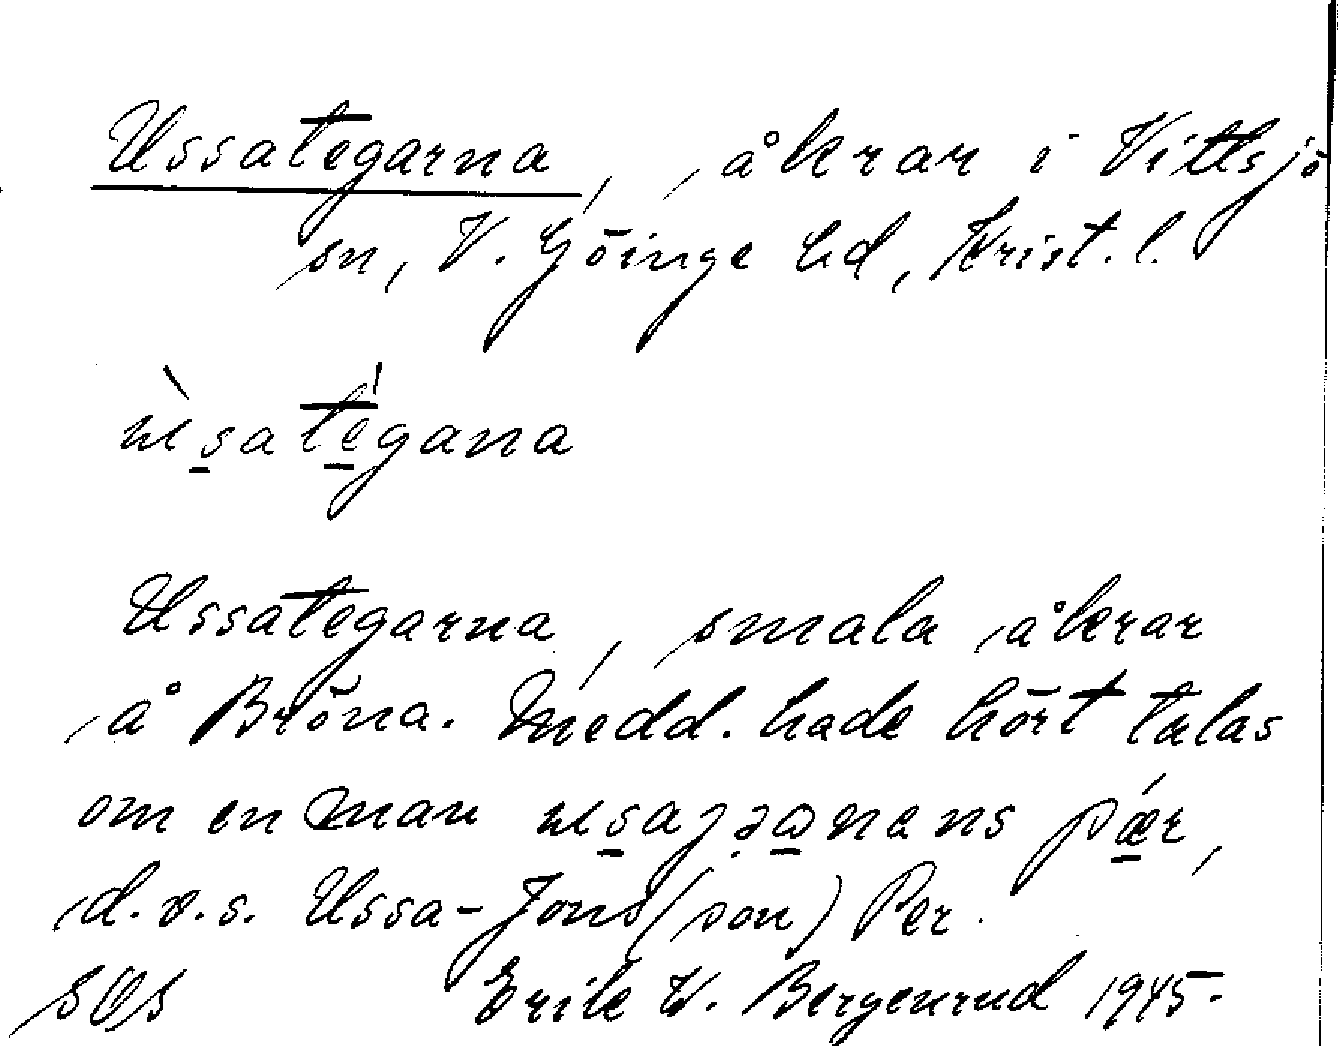 Ussategarna, åkrar i Vittsjö
sn, V. Göinge hd, Krist. l.
ùsatégana
Ussategarna, smala åkrar
å Bröna. Medd. hade hört talas
om en man pǽr,
d.v.s. Ussa-Jons(son) Per.
SOS Erik W. Bergenrud 1945.